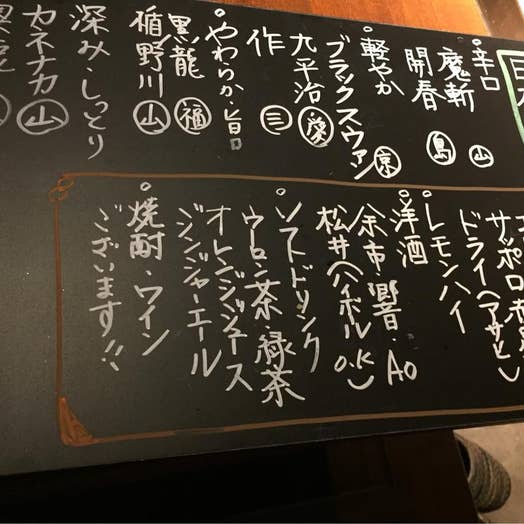 日
○辛口
魔斬 山
開春 島
○軽やか
ブラックスワン 京
九平治 愛
作 三
○やわらか・旨口
黒龍 福
楯野川 山
深み・しっとり
カネナカ 山
サッポロ
ドライ(アサヒ)
レモンハイ
○洋酒
余市・響・AO
松井(ハイボルO.K)
○ソフトドリンク
ウーロン茶・緑茶
オレンジジュース
ジンジャーエール
○焼酎・ワイン
ございます!!